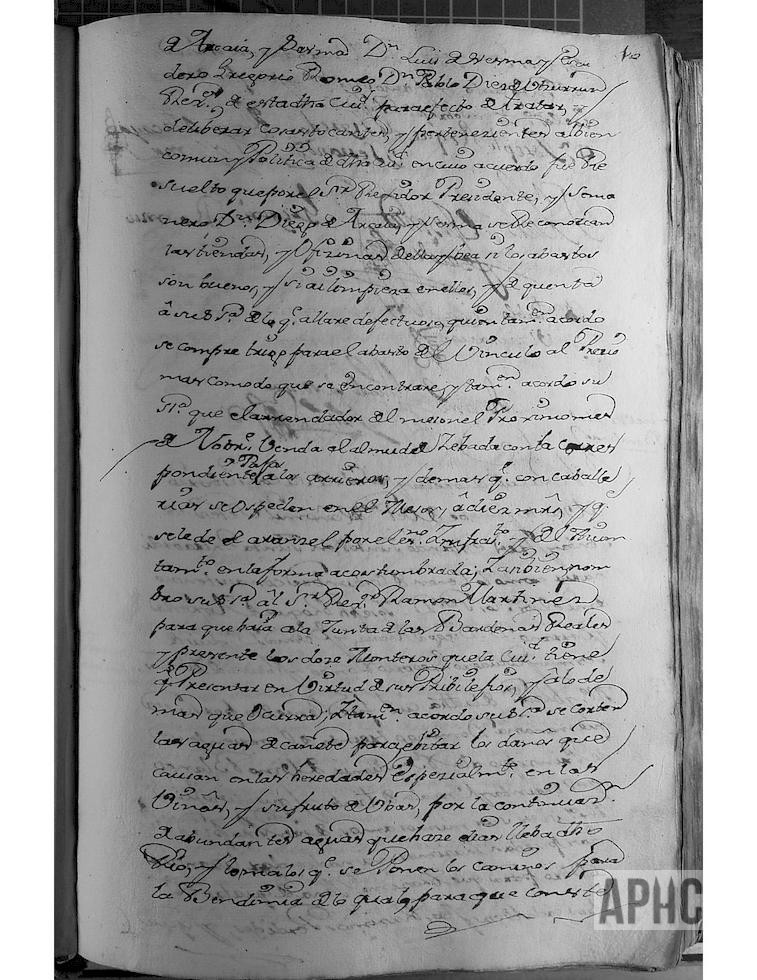 de Arcaia, y Lerma Dn Luis de Lerma y Escu
dero Gregorio Romeo Dn Pablo Diez de Vlzurrun
Rexres de esta dha Ciud para efecto de tratar, y
deliberar cosas tocantes, y pertenezientes al bien
comun y Politica de dha Ciud en cuio acuerdo fue Re
suelto que por el Sr Rexidor Presidente, y Sema
nero Dn Diego de Arcaia, y Lerma se Reconozcan
las tiendas, y ofizinas de ellas y bea si los abastos
son buenos, y si ai limpieza en ellos, y de quenta
â su Sa de lo qe allare defectuoso, quien tamn acordo
se compre trigo para el abasto del Vinculo al Precio
mas comodo que se encontrare, y tamn acordo su
Sa que el arrendador del meson el Proximo mes
de Nobre Venda el almud de Zebada con la corres
pondiente Paja a los arrieros, y demas qe con caballe
rias se Ospeden en el Meson, â diez mrs, y qe
se le de el aranzel por el essno Infraito y del Aiun
tamto en la forma acostumbrada; Tanbien nom
bro su Sa âl Sr Rexor Ramon Martinez
para que baia a la Junta de las Bardenas Reales
y presente los doze Monteros que la Ciud tiene
qe Presentar en Virtud de sus Pribilegios, y a lo de
mas que Ocurra; Ytamn acordo su Sa se corten
las aguas de cañete para ebitar los daños que
causan en las heredades Espezialmte en las
Viñas, y su fruto de Vbas, por la continuaon
de abundantes aguas que haze dias lleba dho
Rio, y lo malos qe se Ponen los caminos para
la Bendimia de lo qual, y para que conste
APHC